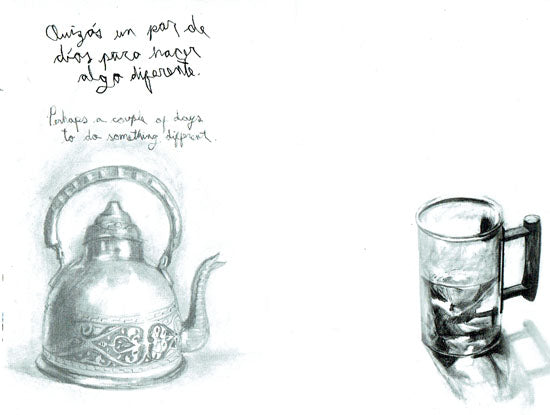 Quizás un par de
días para hacer
algo diferente.
Perhaps a couple of days
to do something different.